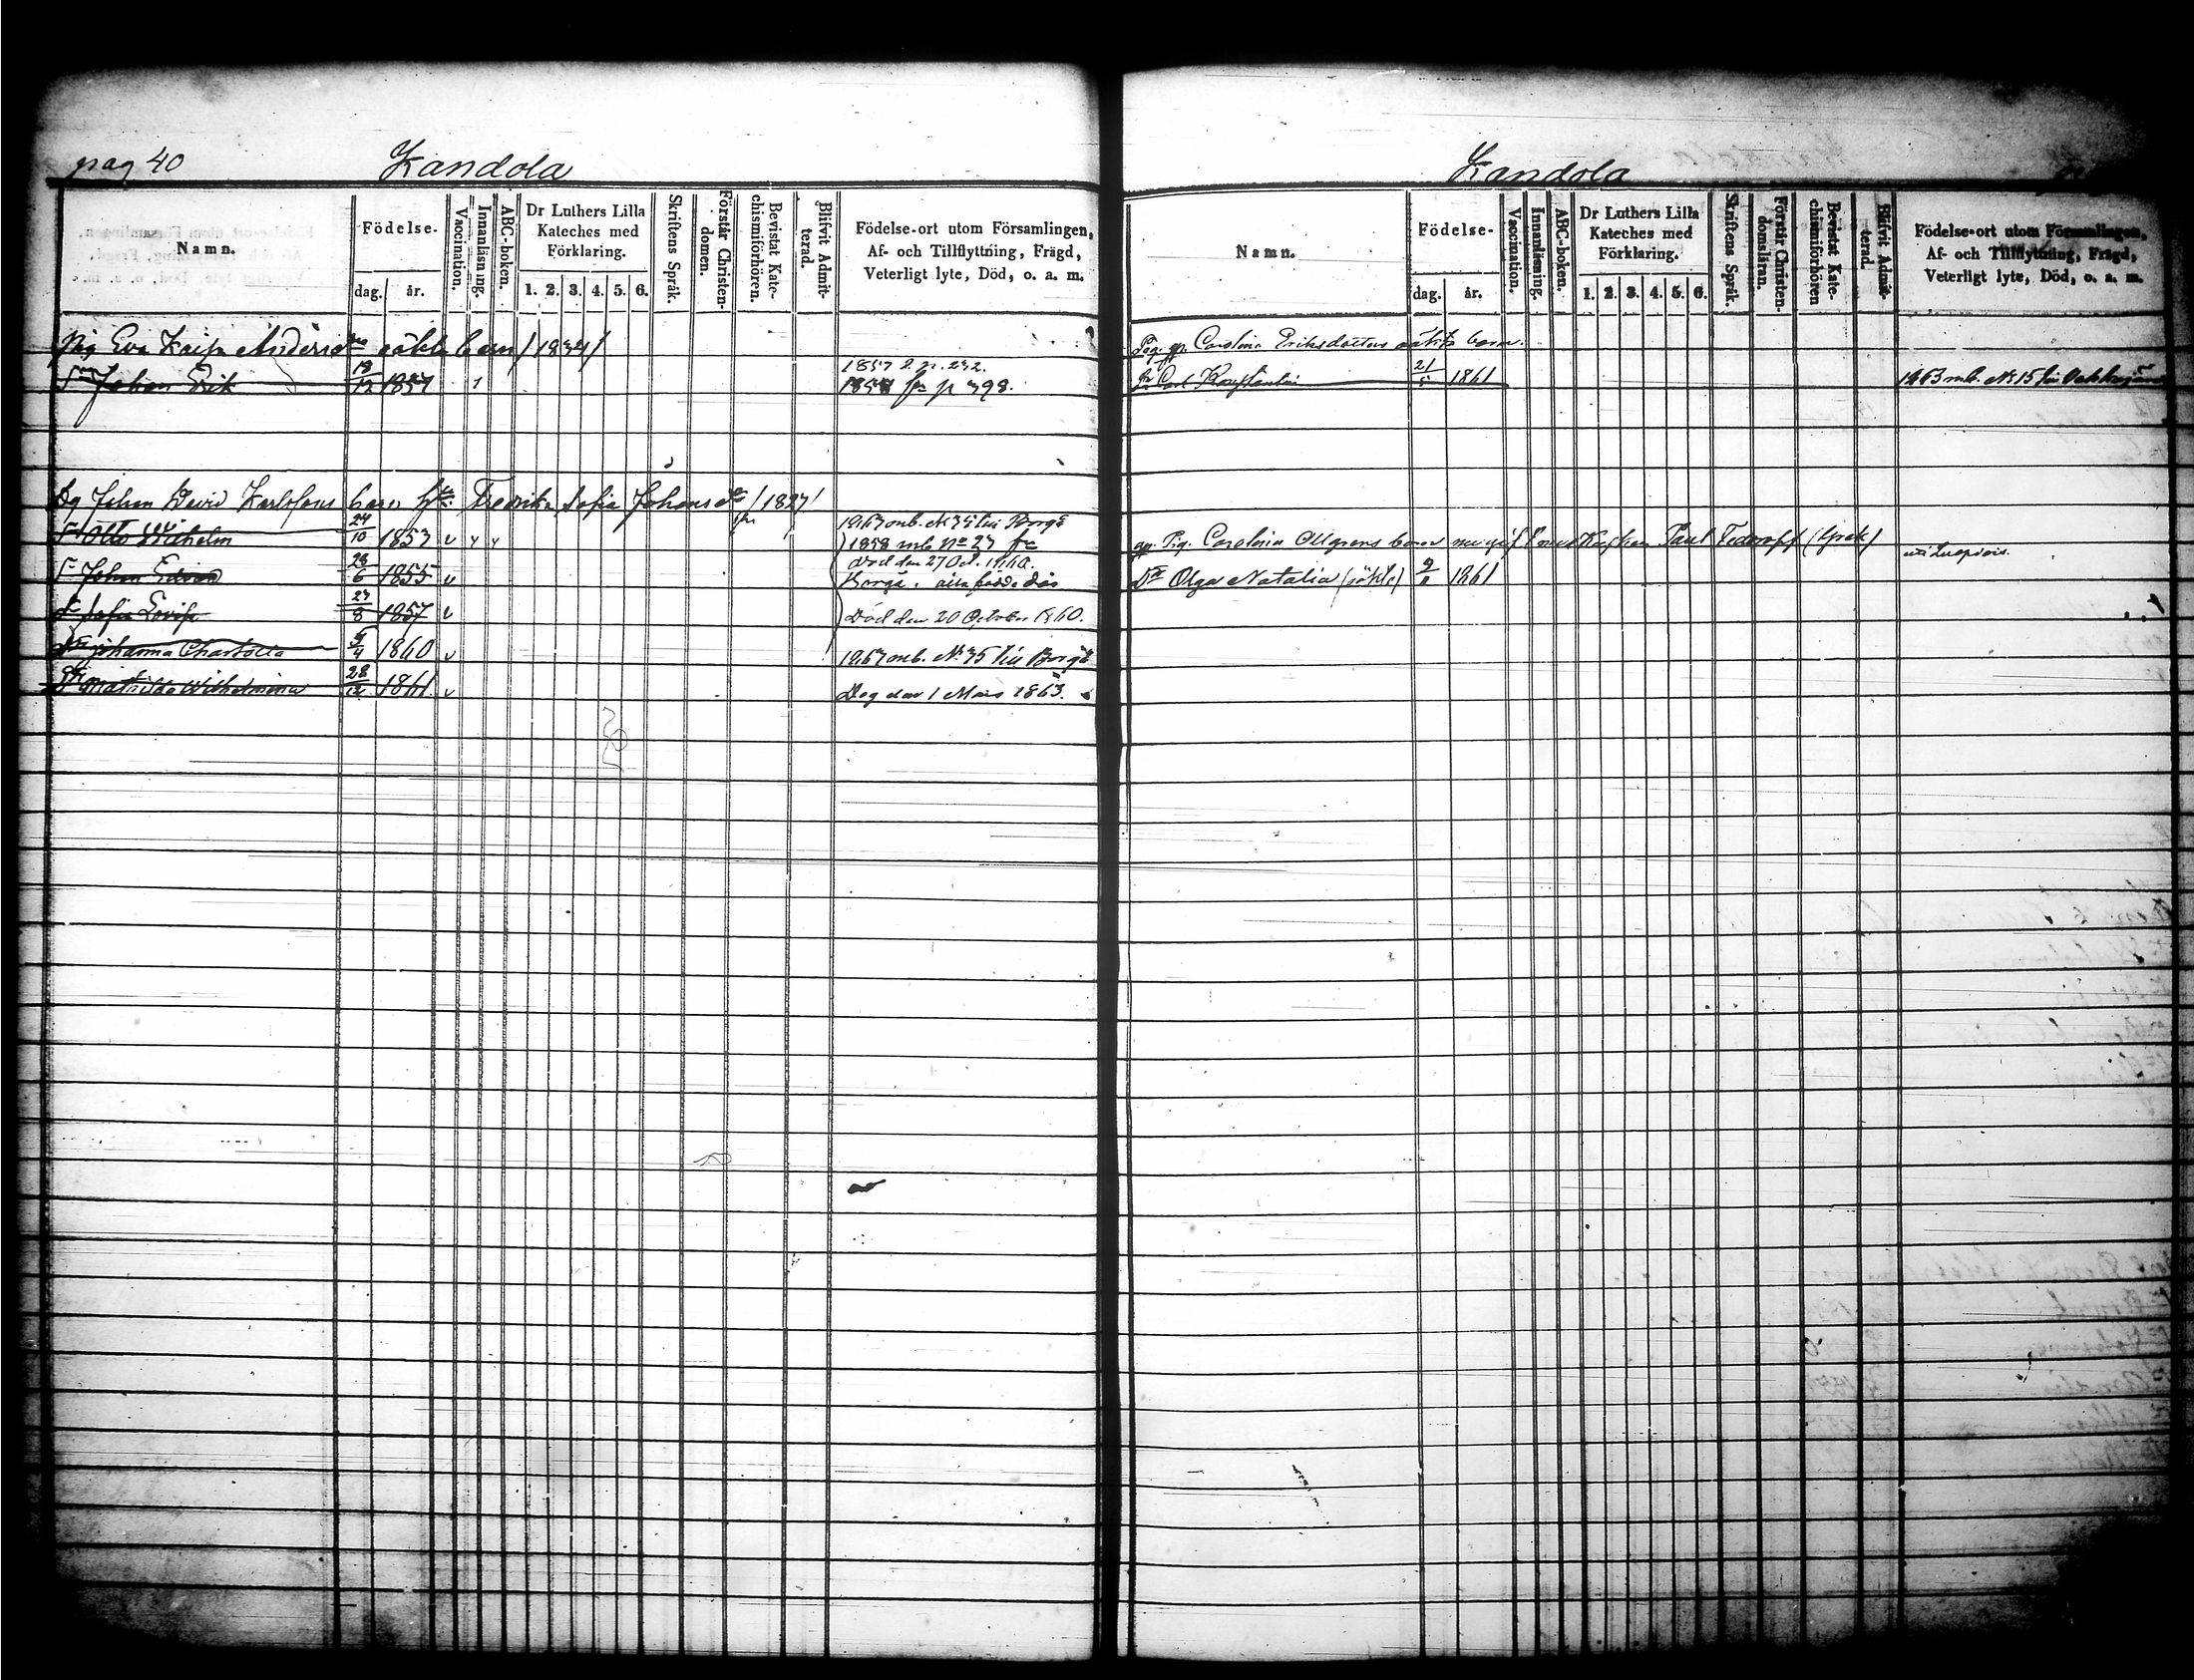 pag 40 Kandola
Namn.
Födelse-
dag. år.
Vaccination.
Innanläsning.
ABC-boken.
Dr Luthers Lilla Kateches med Förklaring.
1. 2. 3. 4. 5. 6.
Skriftens Språk.
Förstår Christendomen.
Bevistat Katechismiförhören.
Blifvit Admitterad.
Födelse-ort utom Församlingen,
Af- och Tillflyttning, Frägd,
Veterligt lyte, Död, o. a. m.
Pig Eva Kaisa Andersdrs oäkta barn /1834/
Sn Johan Erik 18/12 1857 1857 2. p. 232.
1858 fr p 398.
Dg Johan David Karlssons barn Fredrika Sofia Johansdr /1827/
Sn Otto Wilhelm 24/10 1853 v y y 1863 mb. N 35 till Borgå
1858 mb No 23 fr
Sn Johan Edvard 23/6 1855 v Död den 27 Oct. 1860.
Borgå. alla födde där
Dr Sofia Lovisa 23/8 1857 v Död den 20 October 1860.
Dr Johanna Charlotta 5/4 1860 v 1863 mb. N 35 till Borgå
Dr Mathilda Wilhelmina 28/12 1861. v Dog den 1 Mars 1863.
Kandola
Namn.
Födelse-
dag. år.
Vaccination.
Innanläsning.
ABC-boken.
Dr Luthers Lilla Kateches med Förklaring.
1. 2. 3. 4. 5. 6.
Skriftens Språk.
Förstår Christendomsläran.
Bevistat Katechismiförhören
Blifvit Admitterad.
Födelse-ort utom Församlingen,
Af- och Tillflyttning, Frägd,
Veterligt lyte, Död, o. a. m.
Pig. Carolina Eriksdotters oäkta barn.
Sn Carl Konstantin 21/5 1861 1863 mb. No 15 till
Pig. Carolina Allgrens barn nu gift Paul Fedoroff (Grek)
Dr Olga Natalia (oäkta) 9/11 1861